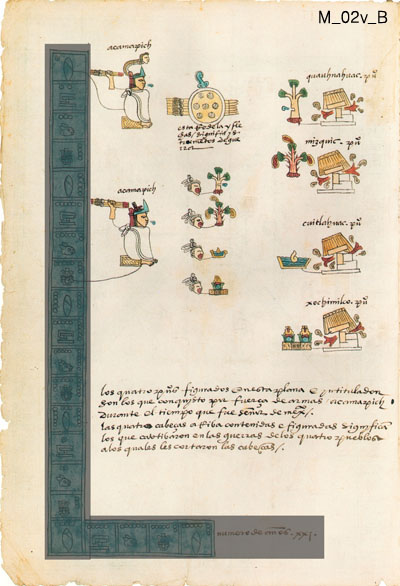 M_02v_B
acamapich
quauhnahuac. pũ
esta Rodela y fle
chas / significa ynstrumentos de gue
rra
mizquic. pũ
acamapich
cuitlahuac. pũ
xochimilco. pũ
los quatro pũos figurados en esta plana e yntitulados
son los que conquisto por fuerça de armas acamapich
Durante el tiempo que fue señor de mexico/.
las quatro cabeças a Riba contenidas e figuradas significā
los que cautibaron en las guerras de los quatro pueblos
a los quales les cortaron las cabeças/.
numero de años. xxi.